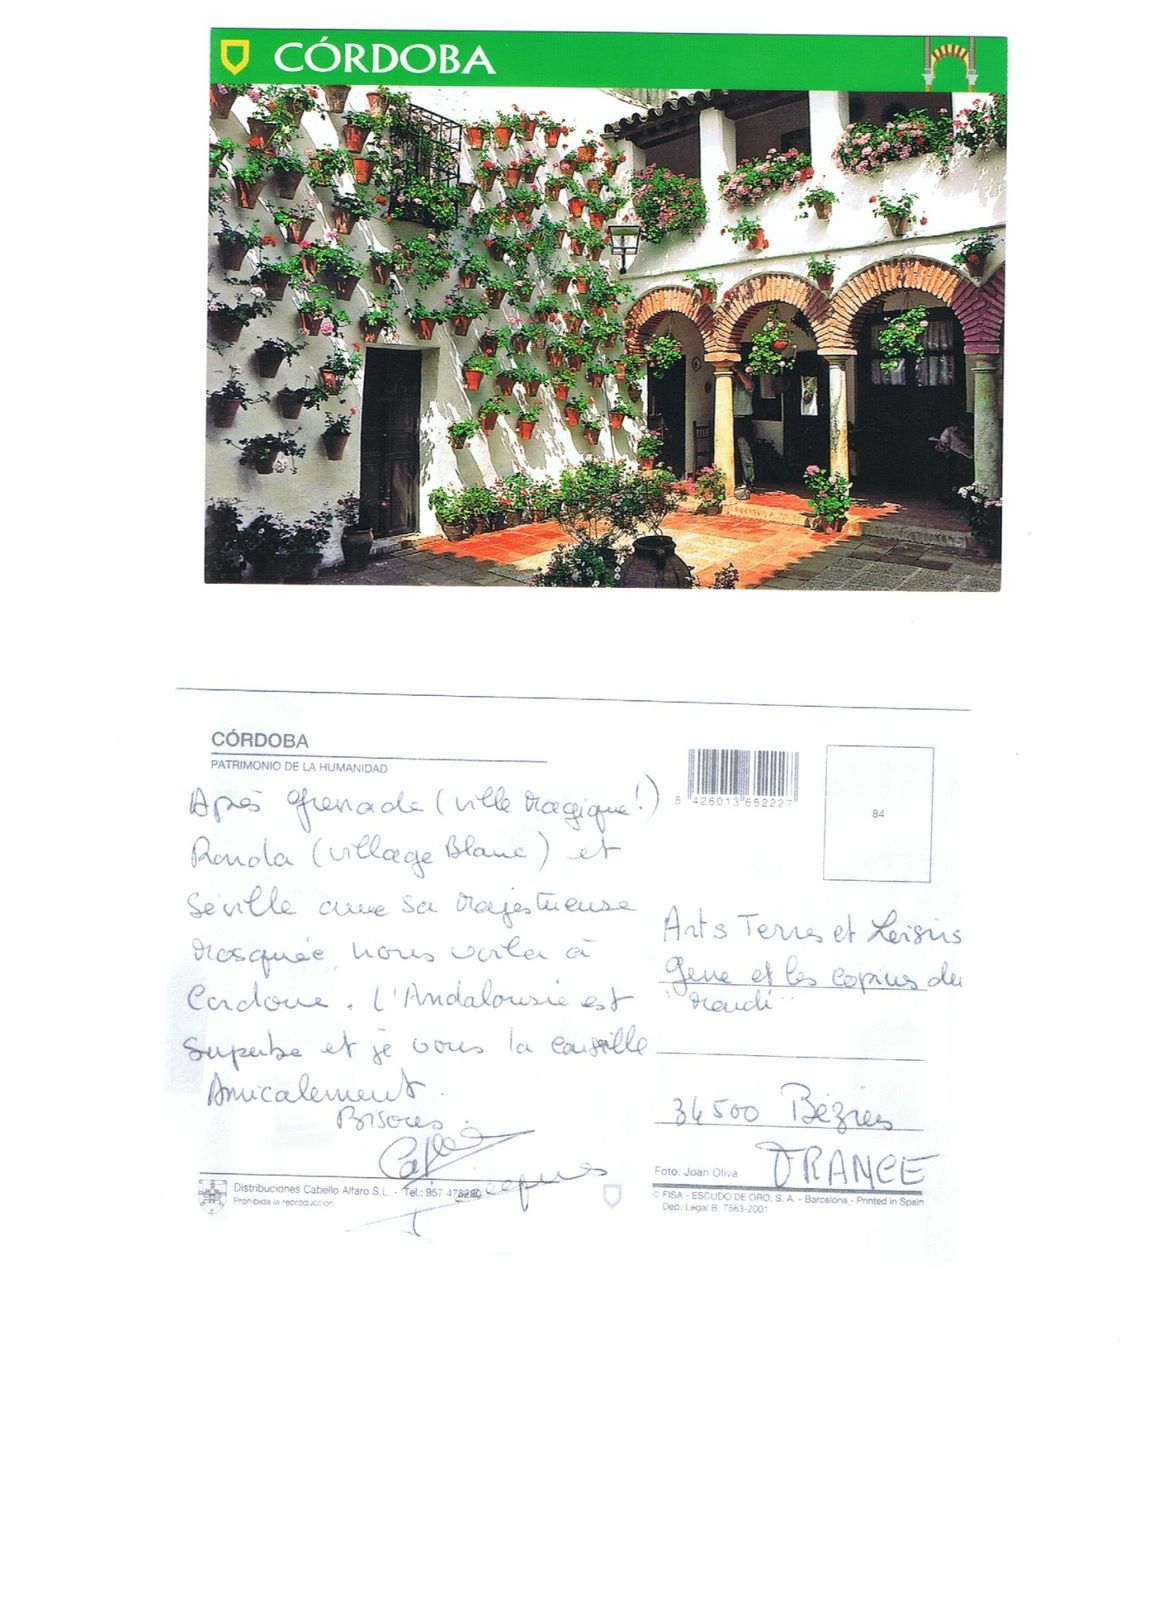 CÓRDOBA
CÓRDOBA
PATRIMONIO DE LA HUMANIDAD
8 426013 652227
84
Après Grenade (ville magique!)
Ronda (village Blanc) et
Séville avec sa majestueuse
mosquée, nous voila à
Cordoue. L'Andalousie est
superbe et je vous la conseille
Amicalement.
Bisous.
Jacques
Arts Terres et Loisirs
Gene et les copines du
"mardi"
34500 Béziers
FRANCE
Distribuciones Cabello Alfaro S.L. - Tel.: 957
Prohibida la reproducción
Foto: Joan Oliva
© FISA - ESCUDO DE ORO, S. A. - Barcelona - Printed in Spain
Dep. Legal B. 7563-2001